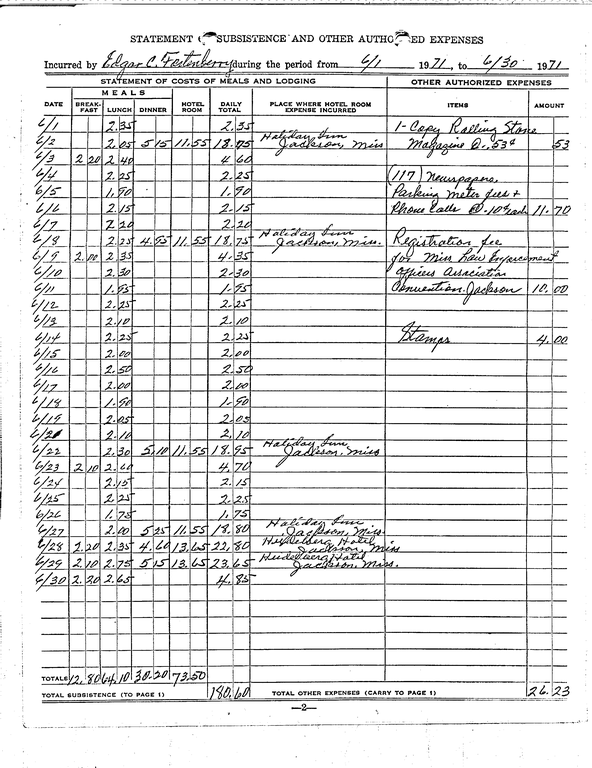 STATEMENT SUBSISTENCE AND OTHER AUTHO ED EXPENSES
Incurred by Edgar C. Fortenberry during the period from 6/1 1971, to 6/30 1971
STATEMENT OF COSTS OF MEALS AND LODGING OTHER AUTHORIZED EXPENSES
MEALS
DATE BREAK-FAST LUNCH DINNER HOTEL ROOM DAILY TOTAL PLACE WHERE HOTEL ROOM EXPENSE INCURRED ITEMS AMOUNT
6/1 2.35 2.35 1-Copy Rolling Stone
6/2 2.05 5 15 11.55 18.75 Holiday Inn Jackson, Miss Magazine @ .53¢ 53
6/3 2 20 2 40 4 60
6/4 2.25 2.25 (117) Newspapers,
6/5 1.90 1.90 Parking meter fees +
6/6 2.15 2.15 Phone Calls @ .10¢ each 11.70
6/7 2 20 2.20
6/8 2.25 4.95 11.55 18.75 Holiday Inn Jackson, Miss. Registration fee
6/9 2.00 2.35 4.35 for Miss Law Enforcement
6/10 2.30 2.30 officers Association
6/11 1.95 1.95 Convention. Jackson 10.00
6/12 2.25 2.25
6/13 2.10 2.10
6/14 2.25 2.25 Stamps 4.00
6/15 2.00 2.00
6/16 2.50 2.50
6/17 2.00 2.00
6/18 1.90 1.90
6/19 2.05 2.05
6/20 2.10 2.10
6/22 2.30 5.10 11.55 18.95 Holiday Inn Jackson, Miss
6/23 2 10 2.60 4.70
6/24 2.15 2.15
6/25 2.25 2.25
6/26 1.75 1.75
6/27 2.00 5 25 11.55 18.80 Holiday Inn Jackson, Miss.
6/28 2.20 2.35 4.60 13.65 22.80 Heidelberg Hotel Jackson, Miss
6/29 2.10 2.75 5 15 13.65 23.65 Heidelberg Hotel Jackson, Miss.
6/30 2.20 2.65 4.85
TOTALS 12.80 64.10 30.20 73.50
TOTAL SUBSISTENCE (TO PAGE 1) 180.60 TOTAL OTHER EXPENSES (CARRY TO PAGE 1) 26.23
—2—